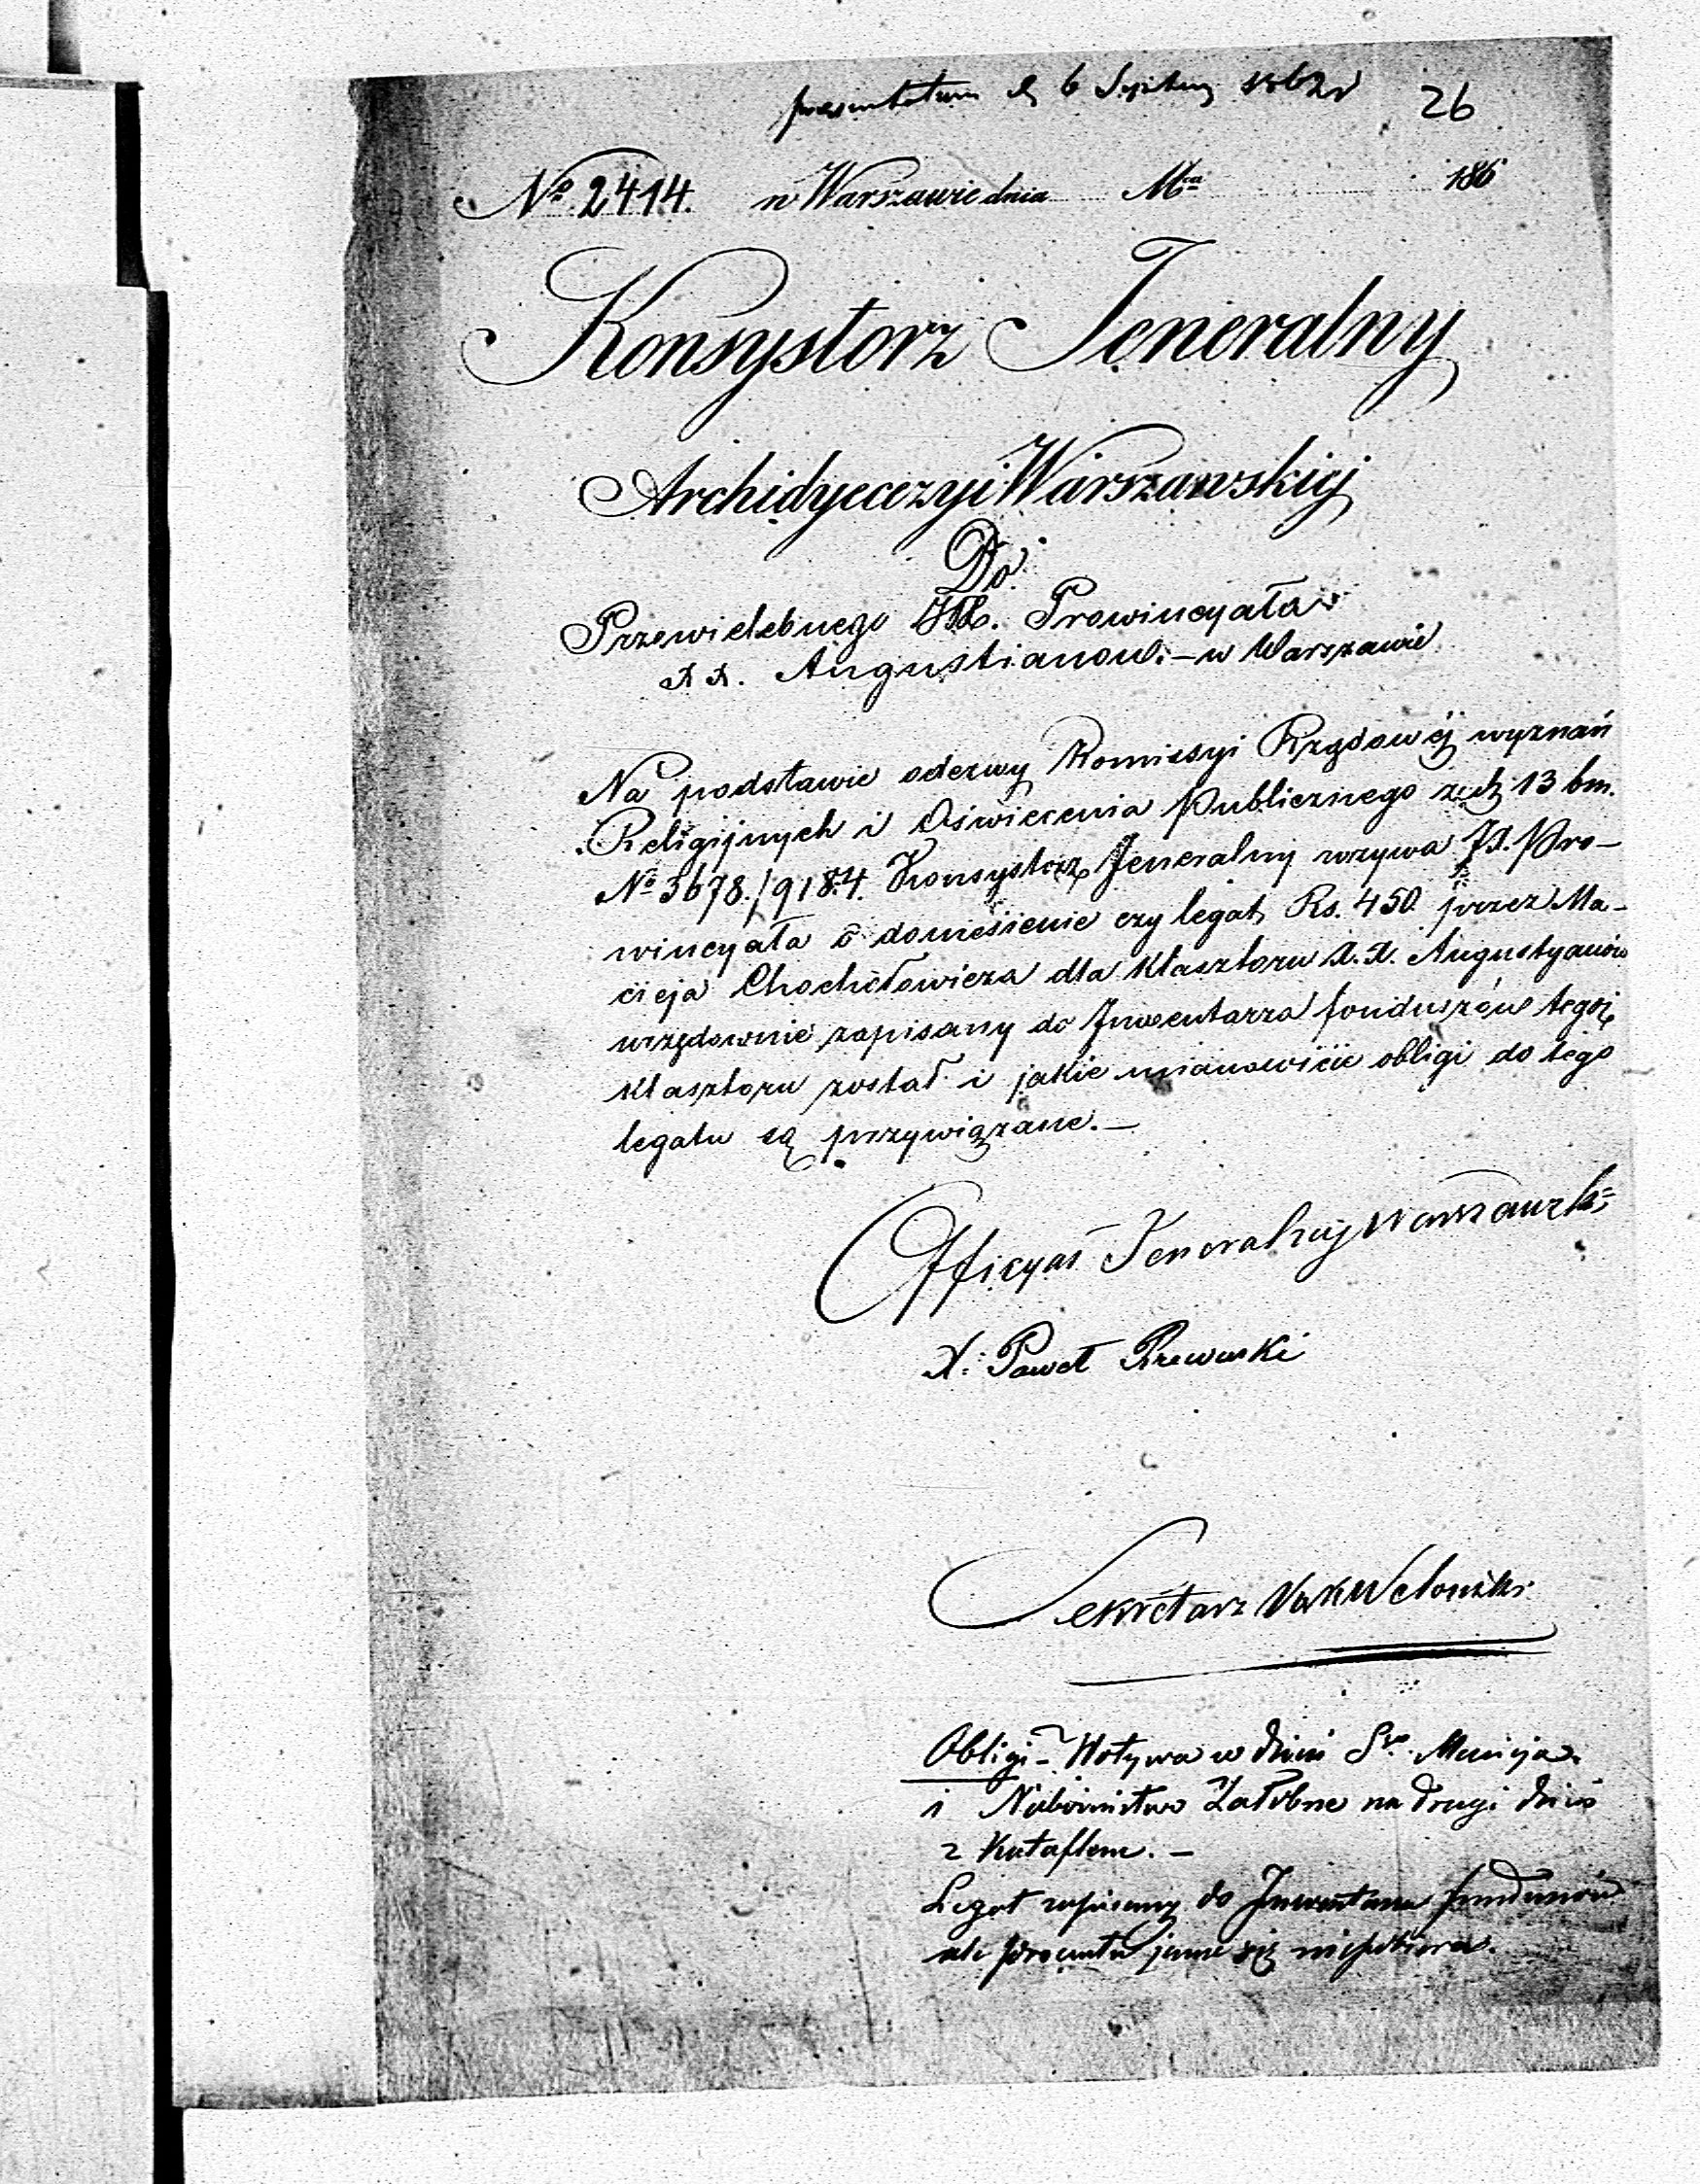 presentatum d. 6 1862 r
26
No 2414. w Warszawie dnia Mca 186
Konsystorz Jeneralny
Archidyecezyi Warszawskiej
Do
Przewielebnego JX. Prowincyała
XX. Augustianow. — w Warszawie
Na podstawie odezwy Kommissyi Rządowéj wyznań
Religijnych i Oświecenia Publicznego z d. 13 bm.
No 3678./9184. Konsystorz Jeneralny wzywa JX. Pro-
wincyała o doniesienie czy legat Rs. 450 przez Ma-
cieja Chochołowicza dla Klasztoru X.X. Augustyanów
urzędownie zapisany do Inwentarza funduszów tegoż
klasztoru został i jakie mianowicie obligi do tego
legatu są przywiązane. —
Officyał Jeneralny Warszawski
X. Paweł Rzewuski
Sekretarz
Obligi — Wotywa w dzień Sgo Macieja
i Nabożeństwo Żałobne na drugi dzień
z Katafkem. —
Legat zapisany do Inwentarza funduszów
ale procentu się niepobiera.